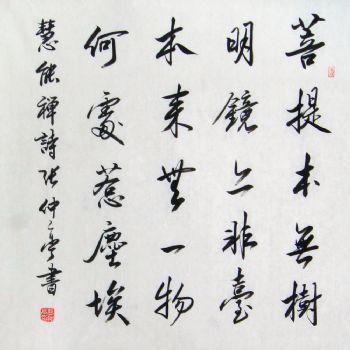 菩提本無樹
明鏡亦非臺
本来無一物
何處惹塵埃
慧能禪詩張仲亭書